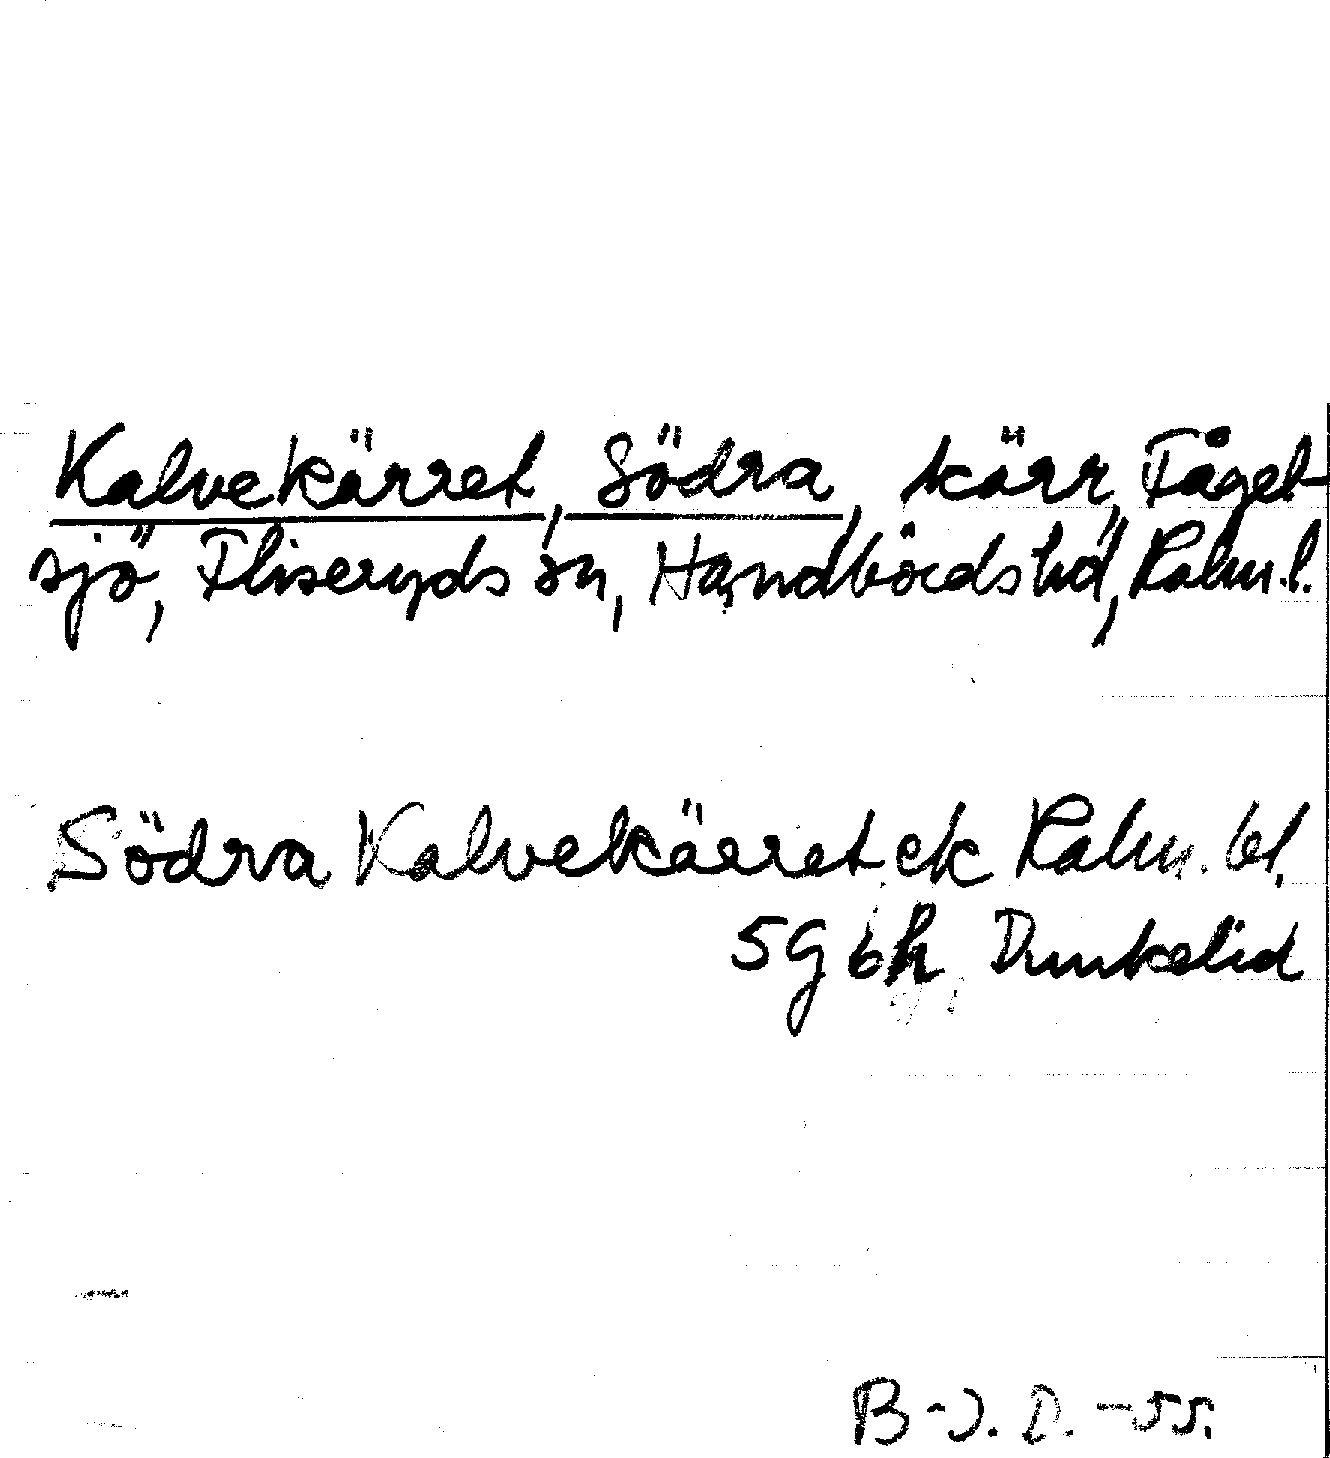 Kalvekärret, Södra, kärr, Fågel-
sjö, Fliseryds sn, Handbörds hd, Kalm. l.
Södra Kalvekärret ek Kalm. bl.
5G bh, Dunkelid
B-J. D. -55.